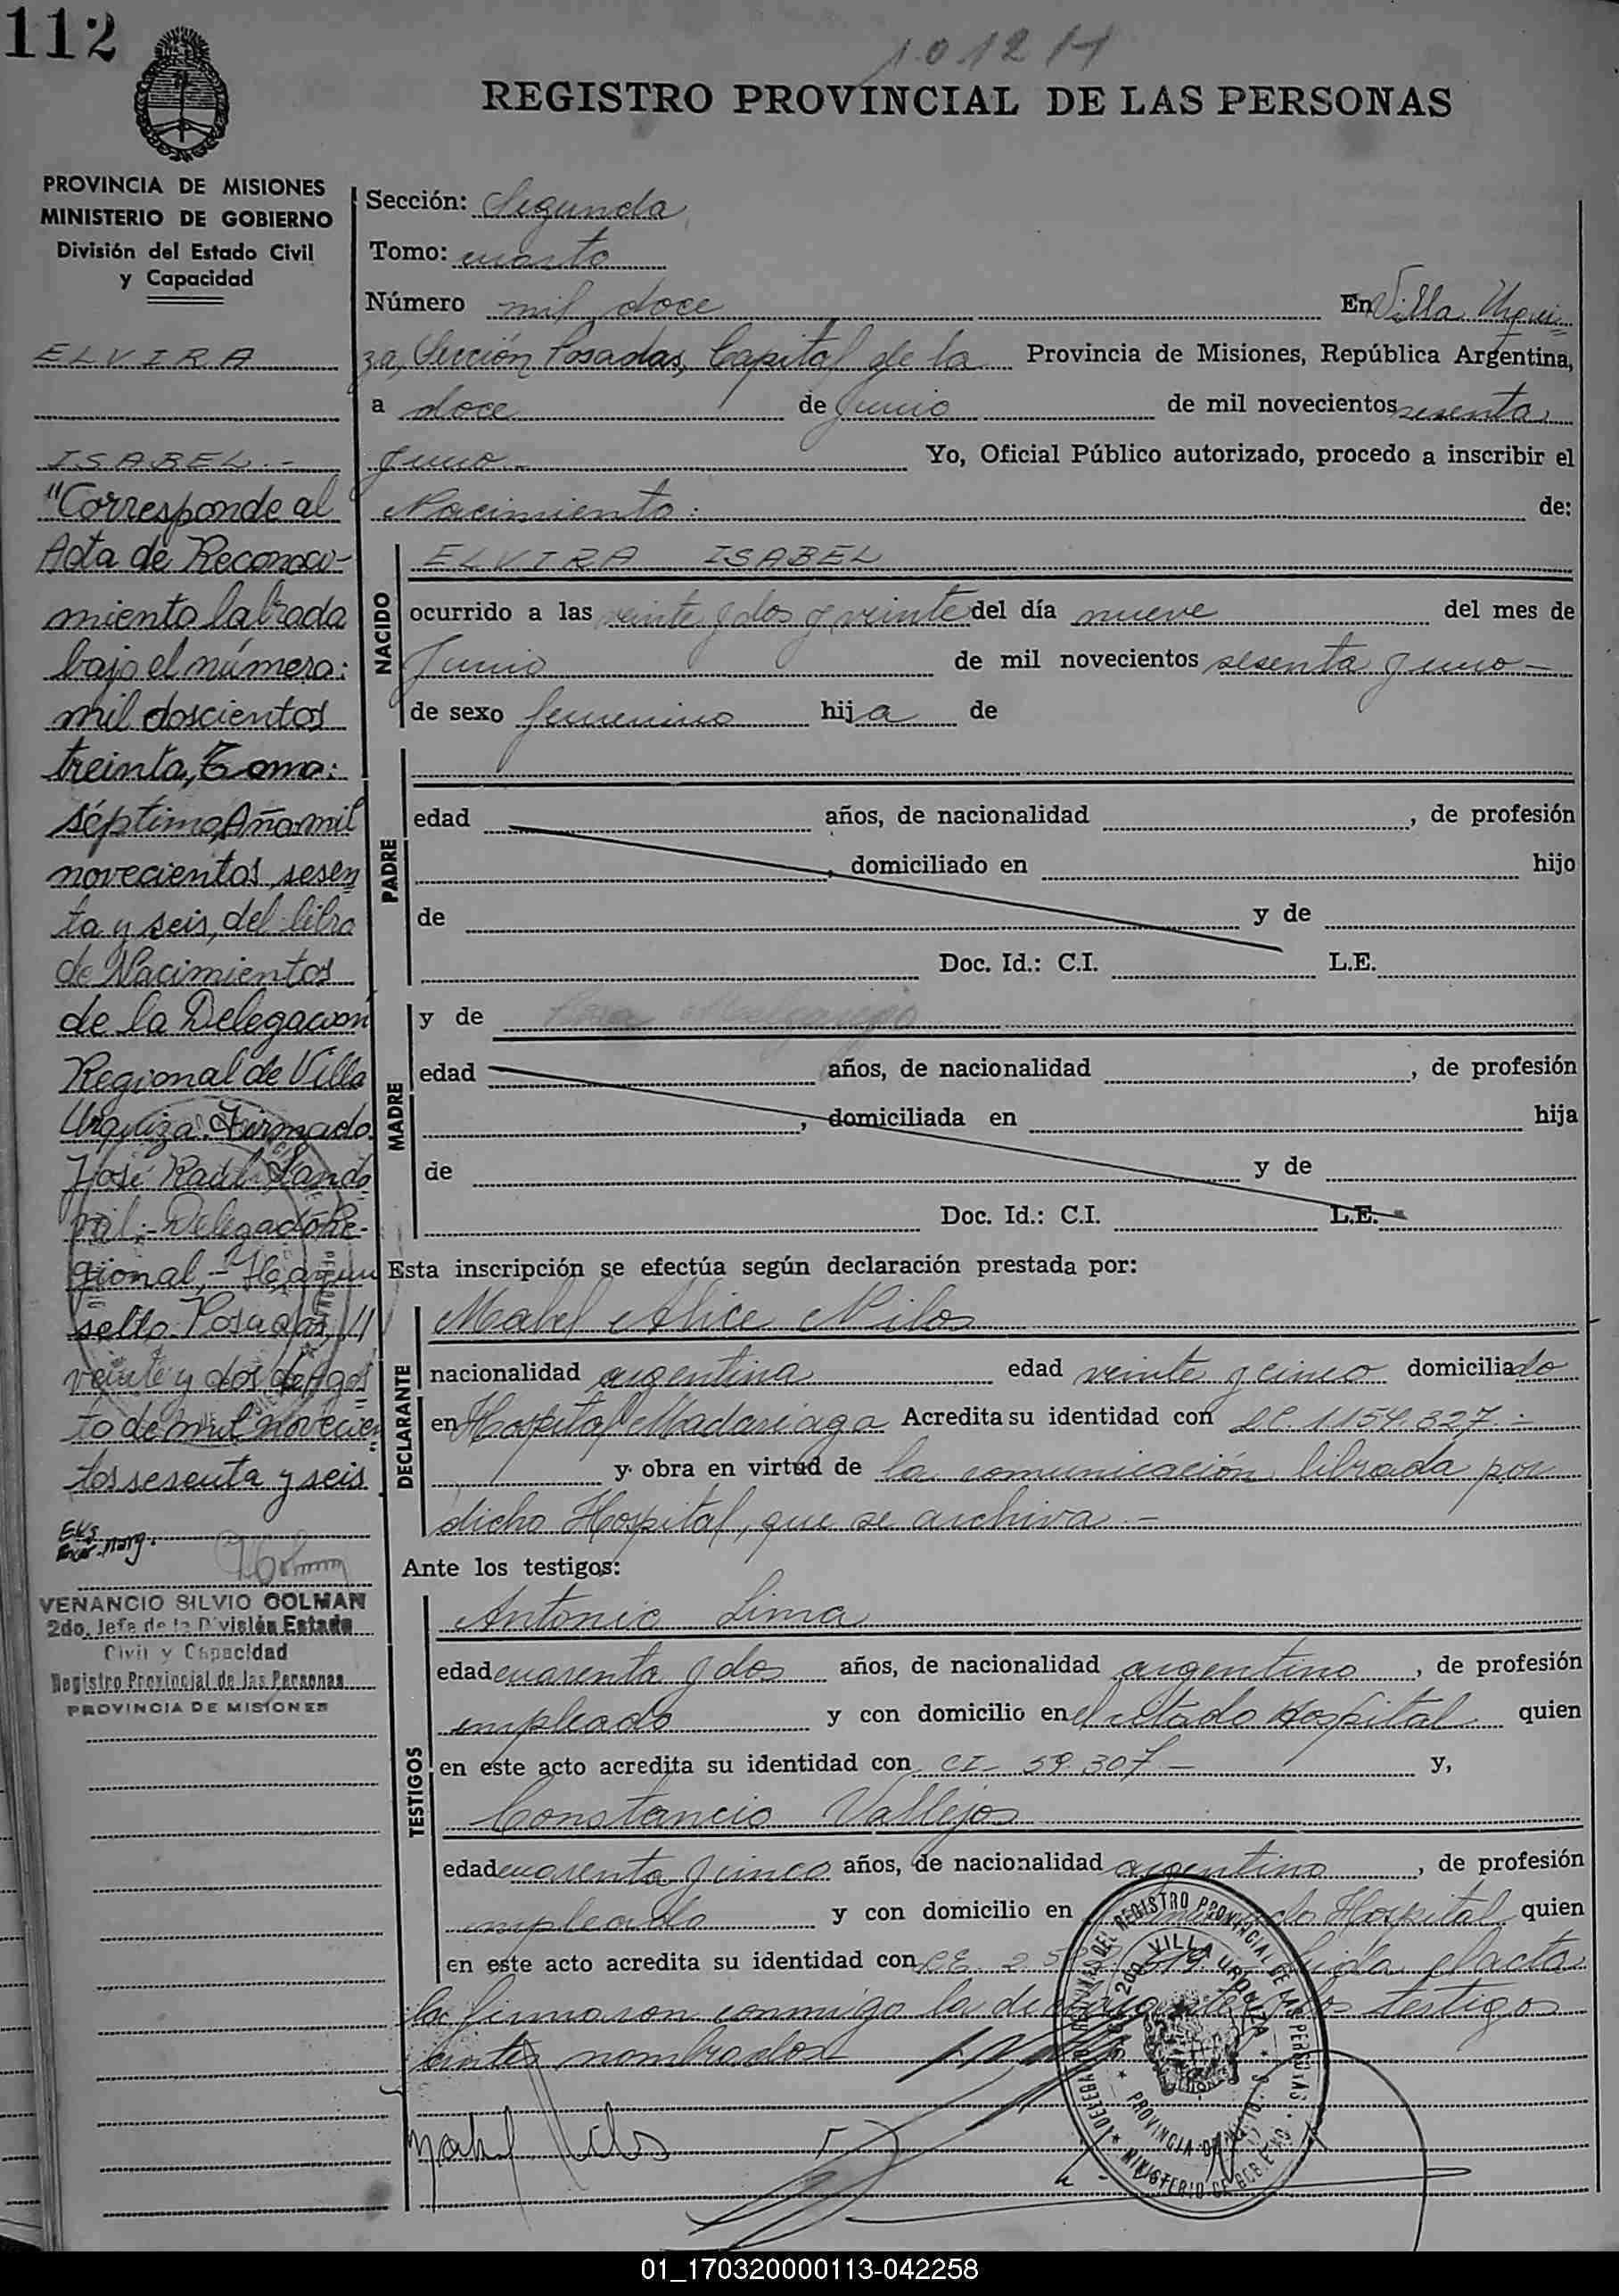 112
1012 H
REGISTRO PROVINCIAL DE LAS PERSONAS
PROVINCIA DE MISIONES
MINISTERIO DE GOBIERNO
División del Estado Civil
y Capacidad
ELVIRA
ISABEL.-
"Corresponde al
Acta de Reconoci-
miento labrada
bajo el número:
mil doscientos
treinta, Tomo:
séptimo, Año mil
novecientos sesen
ta y seis, del libro
de Nacimientos
de la Delegación
Regional de Villa
Urquiza. Firmado
José Raúl Sando
val.- Delegado Re-
gional.- Hay un
sello. Posadas,
veinte y dos de Agos
to de mil novecien
tos sesenta y seis
VENANCIO SILVIO COLMAN
2do. Jefe de la División Estado
Civil y Capacidad
Registro Provincial de las Personas
PROVINCIA DE MISIONES
Sección: Segunda
Tomo: cuarto
Número mil doce En Villa Urqui-
za, Sección Posadas, Capital de la Provincia de Misiones, República Argentina,
a doce de Junio de mil novecientos sesenta
y uno - Yo, Oficial Público autorizado, procedo a inscribir el
Nacimiento: de:
NACIDO
ELVIRA ISABEL
ocurrido a las veinte y dos y veinte del día nueve del mes de
Junio de mil novecientos sesenta y uno -
de sexo femenino hija de
PADRE
edad años, de nacionalidad , de profesión
, domiciliado en hijo
de y de
Doc. Id.: C.I. L.E.
MADRE
y de Rosa Melgarejo
edad años, de nacionalidad , de profesión
, domiciliada en hija
de y de
Doc. Id.: C.I. L.E.
Esta inscripción se efectúa según declaración prestada por:
DECLARANTE
Mabel Alice Nilos
nacionalidad argentina edad veinte y cinco domiciliado
en Hospital Madariaga Acredita su identidad con LC. 1.154.327.-
y obra en virtud de la comunicación librada por
dicho Hospital, que se archiva.-
Ante los testigos:
TESTIGOS
Antonio Lima
edad cuarenta y dos años, de nacionalidad argentino, de profesión
empleado y con domicilio en el citado Hospital quien
en este acto acredita su identidad con CI- 59.307.- y,
Constancio Vallejos
edad cuarenta y cinco años, de nacionalidad argentino, de profesión
empleado y con domicilio en Hospital quien
en este acto acredita su identidad con el acta
la firmaron conmigo la declarante y los testigos
antes nombrados
Mabel Nilos
DELEGADO DEL REGISTRO PROVINCIAL DE LAS PERSONAS
VILLA URQUIZA
PROVINCIA DE MISIONES
MINISTERIO DE GOBIERNO
01_170320000113-042258